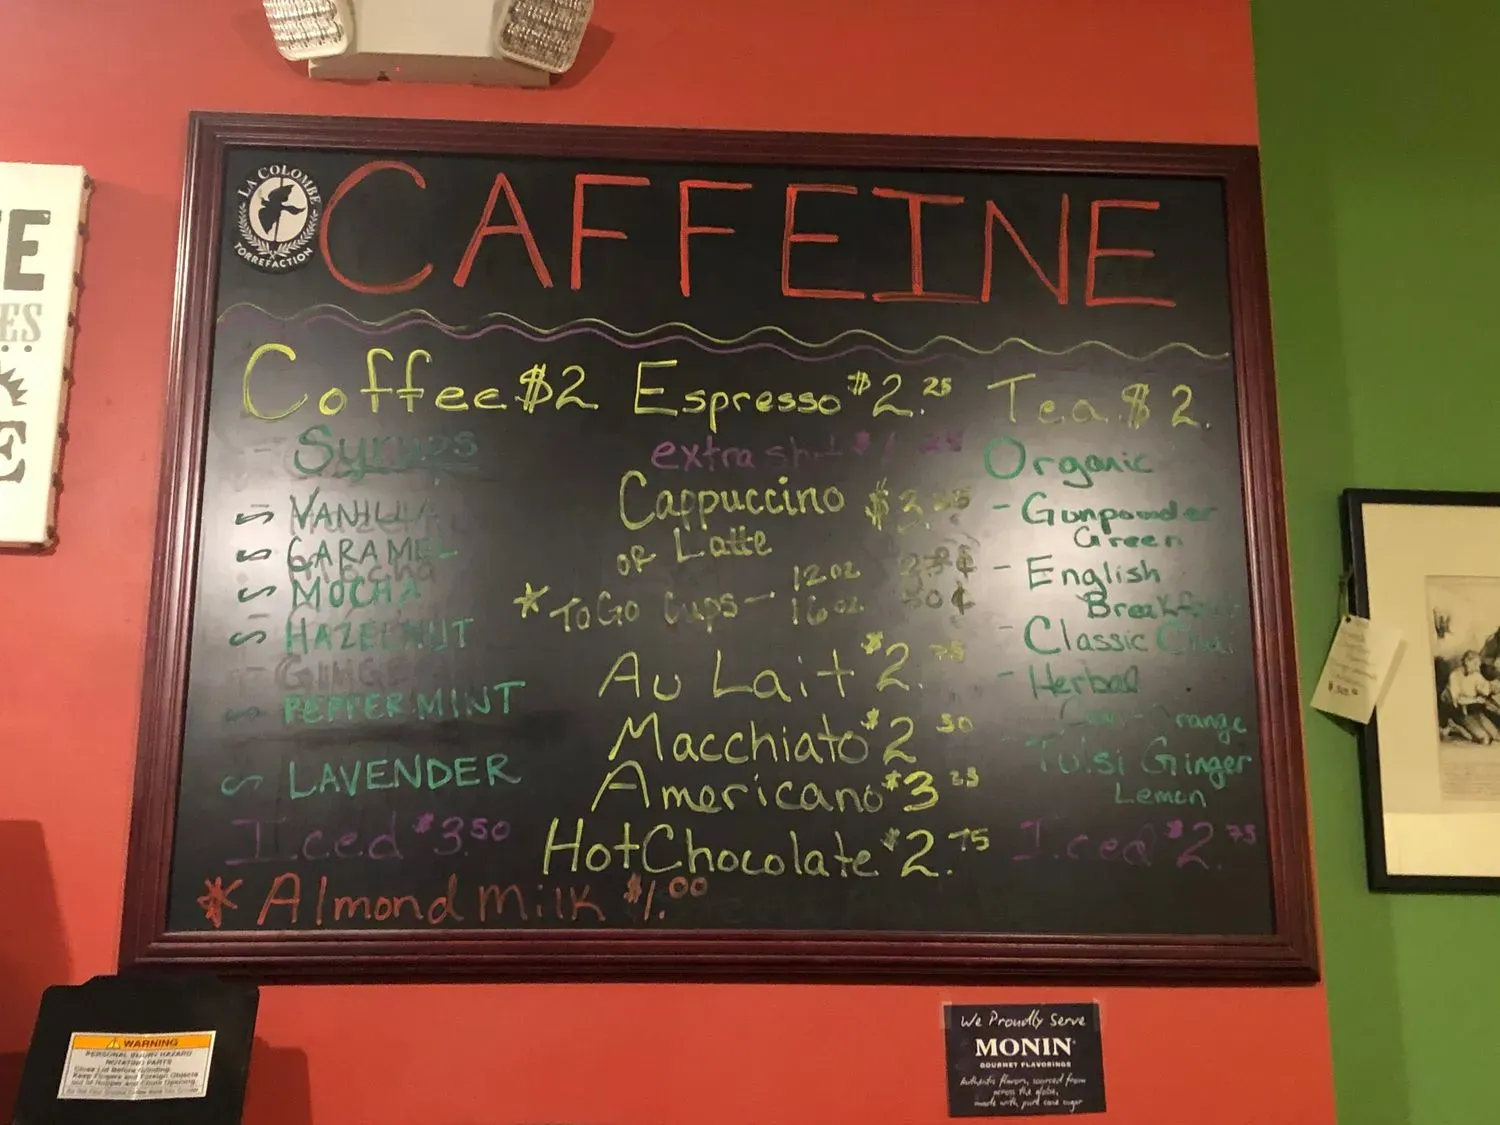 E
ES
E
LA COLOMBE
TORREFACTION
CAFFEINE
Coffee $2
- Syrups
VANILLA
CARAMEL
MOCHA
HAZELNUT
PEPPERMINT
LAVENDER
Iced $3.50
* Almond Milk $1.00
Espresso $2.25
extra shot $1.25
Cappuccino $3.
or Latte
* To Go Cups - 12oz
16oz 50¢
Au Lait $2.75
Macchiato $2.50
Americano $3.25
Hot Chocolate $2.75
Tea $2.
Organic
- Gunpowder
Green
- English
Breakfast
- Classic Chai
- Herbal
Tulsi Ginger
Lemon
Iced $2.75
WARNING
PERSONAL INJURY HAZARD
ROTATING PARTS
Close Lid Before Grinding
Keep Fingers and Foreign Objects
out of Hopper and Chute Opening
We Proudly Serve
MONIN
GOURMET FLAVORINGS
Authentic flavors, sourced from
across the globe,
made with pure cane sugar